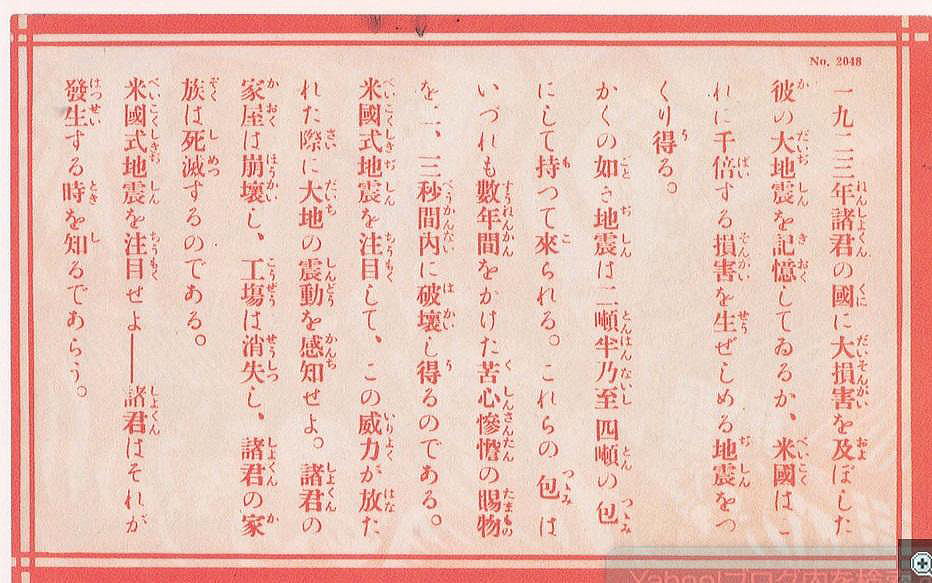 No. 2048
一九二三年諸君の國に大損害を及ぼした
彼の大地震を記憶してゐるか、米國はこ
れに千倍する損害を生ぜしめる地震をつ
くり得る。
かくの如き地震は二噸半乃至四噸の包
にして持つて來られる。これらの包は
いづれも數年間をかけた苦心慘憺の賜物
を二、三秒間内に破壞し得るのである。
米國式地震を注目して、この威力が放た
れた際に大地の震動を感知せよ。諸君の
家屋は崩壞し、工場は消失し、諸君の家
族は死滅するのである。
米國式地震を注目せよ——諸君はそれが
發生する時を知るであらう。